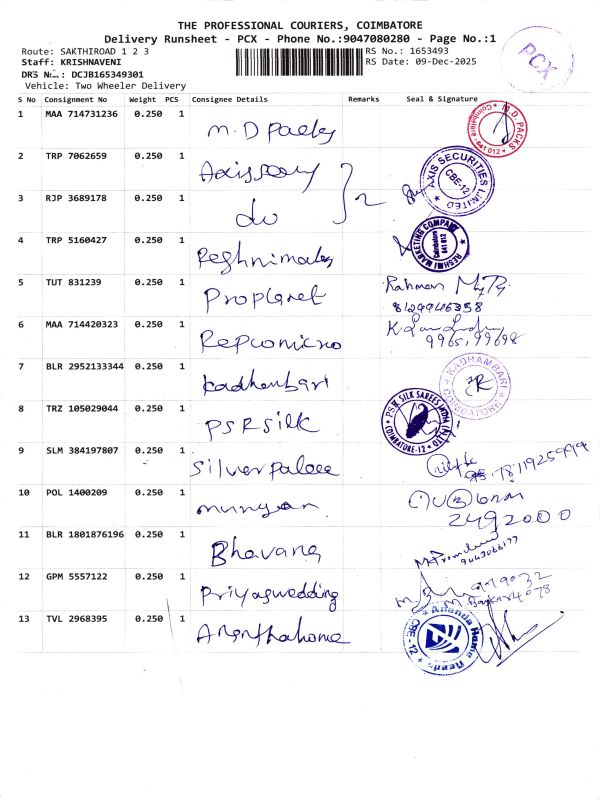 THE PROFESSIONAL COURIERS, COIMBATORE
Delivery Runsheet - PCX - Phone No.:9047080280 - Page No.:1
Route: SAKTHIROAD 1 2 3
RS No.: 1653493
Staff: KRISHNAVENI
RS Date: 09-Dec-2025
DRS No.: DCJB165349301
Vehicle: Two Wheeler Delivery
PCX
S No Consignment No Weight PCS Consignee Details Remarks Seal & Signature
1 MAA 714731236 0.250 1 M.D Packs
M.D. PACKS Coimbatore 641 012
2 TRP 7062659 0.250 1
AXIS SECURITIES LIMITED CBE-12
3 RJP 3689178 0.250 1 do
2
4 TRP 5160427 0.250 1
RESHMI MARKETING COMPANY Coimbatore 641 012
5 TUT 831239 0.250 1 Proplanet Rahman
8129946358
6 MAA 714420323 0.250 1 Repcomicro
9965, 99698
7 BLR 2952133344 0.250 1 Kadhambari
KADHAMBARI COIMBATORE
8 TRZ 105029044 0.250 1 PSR Silk
PSR SILK SAREES INDIA COIMBATORE-12
9 SLM 384197807 0.250 1 Silver palace
10 POL 1400209 0.250 1 Murugan
2492000
11 BLR 1801876196 0.250 1 Bhavans
9443066177
12 GPM 5557122 0.250 1 Priyaswedding
13 TVL 2968395 0.250 1 Ananthahome
Ananda Home Needs CBE-12